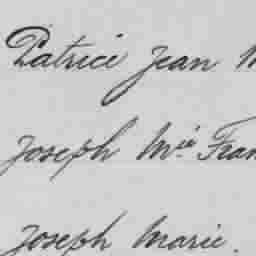 Patrice Jean
Joseph Mie Fran
Joseph Marie.